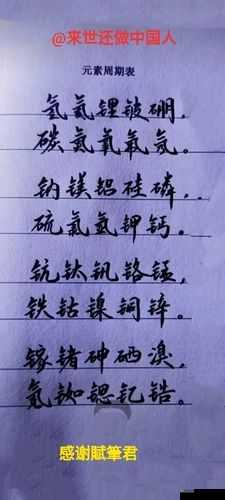 @来世还做中国人
元素周期表
氢氦锂铍硼，
碳氮氧氟氖。
钠镁铝硅磷，
硫氯氩钾钙。
钪钛钒铬锰，
铁钴镍铜锌。
镓锗砷硒溴，
氪铷锶钇锆。
感谢賦筆君